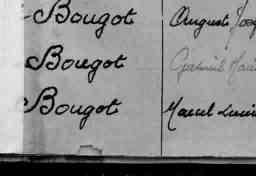 Bougot Auguste Jose
Bougot Gabriel Marie
Bougot Marcel Lucien